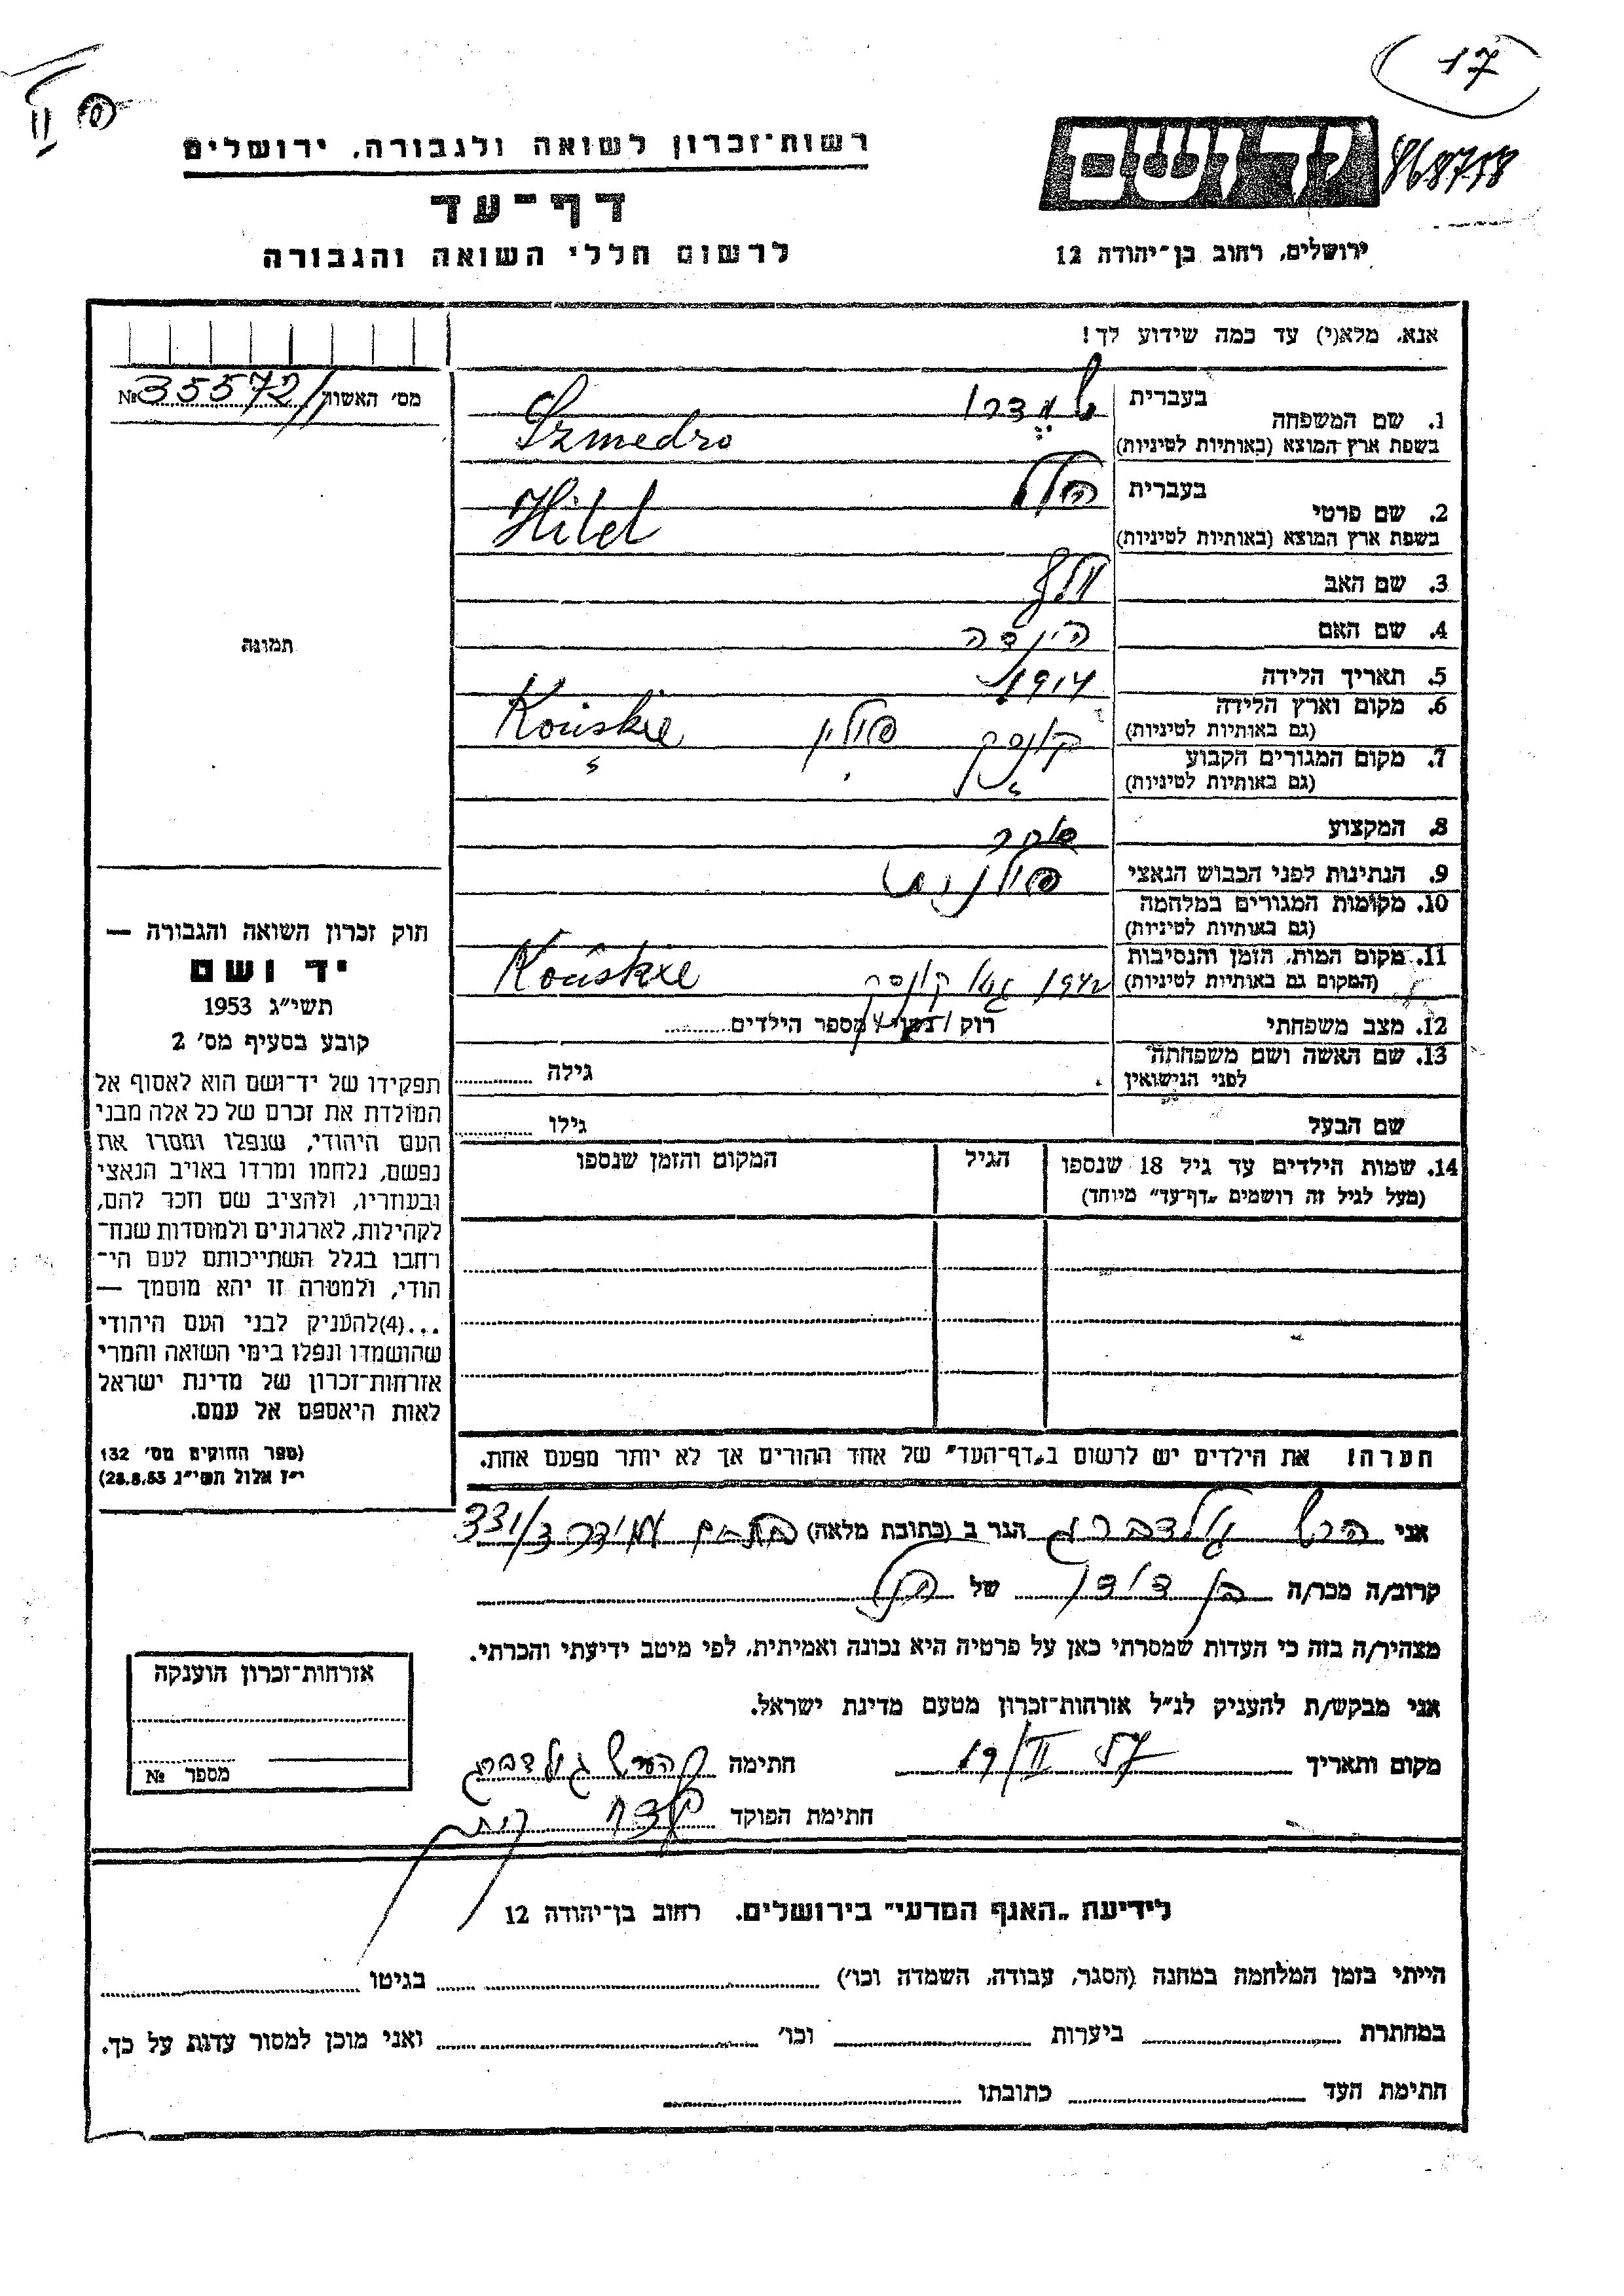 17
רשות־זכרון לשואה ולגבורה, ירושלים
דף־עד
לרשום חללי השואה והגבורה
יד ושם
868758
ירושלים, רחוב בן־יהודה 12
אנא, מלא(י) עד כמה שידוע לך!
מס' האשור № 35572
1. שם המשפחה
בעברית
בשפת ארץ המוצא (באותיות לטיניות)
Szmedro
2. שם פרטי
בעברית הלל
בשפת ארץ המוצא (באותיות לטיניות)
Hilel
3. שם האב
4. שם האם הינדה
5. תאריך הלידה 1914
6. מקום וארץ הלידה
(גם באותיות לטיניות)
קונסק פולין Końskie
7. מקום המגורים הקבוע
(גם באותיות לטיניות)
8. המקצוע סוחר
9. הנתינות לפני הכבוש הנאצי פולנית
10. מקומות המגורים במלחמה
(גם באותיות לטיניות)
11. מקום המות, הזמן והנסיבות
(המקום גם באותיות לטיניות)
1942 גטו קונסק Końskie
12. מצב משפחתי
רוק / נשוי / מספר הילדים
13. שם האשה ושם משפחתה
לפני הנישואין
גילה
שם הבעל
גילו
14. שמות הילדים עד גיל 18 שנספו
(מעל לגיל זה רושמים „דף־עד" מיוחד)
הגיל
המקום והזמן שנספו
תמונה
חוק זכרון השואה והגבורה —
יד ושם
תשי"ג 1953
קובע בסעיף מס' 2
תפקידו של יד־ושם הוא לאסוף אל
המולדת את זכרם של כל אלה מבני
העם היהודי, שנפלו ומסרו את
נפשם, נלחמו ומרדו באויב הנאצי
ובעוזריו, ולהציב שם וזכר להם,
לקהילות, לארגונים ולמוסדות שנח־
רחבו בגלל השתייכותם לעם הי־
הודי, ולמטרה זו יהא מוסמך —
...(4)להעניק לבני העם היהודי
שהושמדו ונפלו בימי השואה והמרי
אזרחות־זכרון של מדינת ישראל
לאות היאספם אל עמם.
(ספר החוקים מס' 132
י"ז אלול תשי"ג 28.8.53)
הערה! את הילדים יש לרשום ב„דף־העד" של אחד ההורים אך לא יותר מפעם אחת.
אני הרש גולדברג הגר ב (כתובת מלאה) בת־ים עמידר 331/3
קרוב/ה מכר/ה בן דודו של
מצהיר/ה בזה כי העדות שמסרתי כאן על פרטיה היא נכונה ואמיתית, לפי מיטב ידיעתי והכרתי.
אני מבקש/ת להעניק לנ"ל אזרחות־זכרון מטעם מדינת ישראל.
מקום ותאריך 19/II 57 חתימה הרש גולדברג
חתימת הפוקד
אזרחות־זכרון הוענקה
מספר №
לידיעת „האגף המדעי" בירושלים. רחוב בן־יהודה 12
הייתי בזמן המלחמה במחנה (הסגר, עבודה, השמדה וכו') בגיטו
במחתרת ביערות וכו' ואני מוכן למסור עדות על כך.
חתימת העד כתובתו